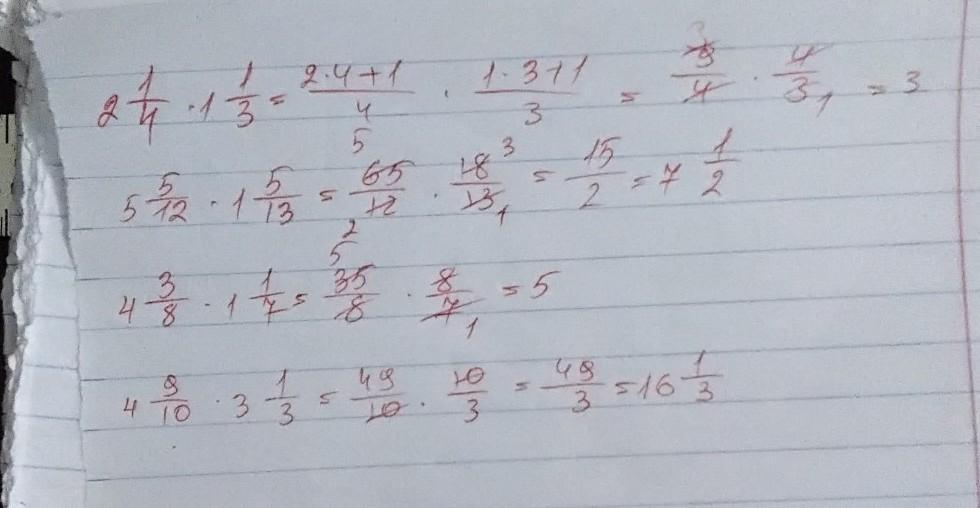 2 1/4 · 1 1/3 = (2·4+1)/4 · (1·3+1)/3 = 9/4 · 4/3 1 = 3
5 5/12 · 1 5/13 = 5 65/12 2 · 18/13 3 1 = 15/2 = 7 1/2
4 3/8 · 1 1/7 = 5 35/8 · 8/7 1 = 5
4 9/10 · 3 1/3 = 49/10 · 10/3 = 49/3 = 16 1/3